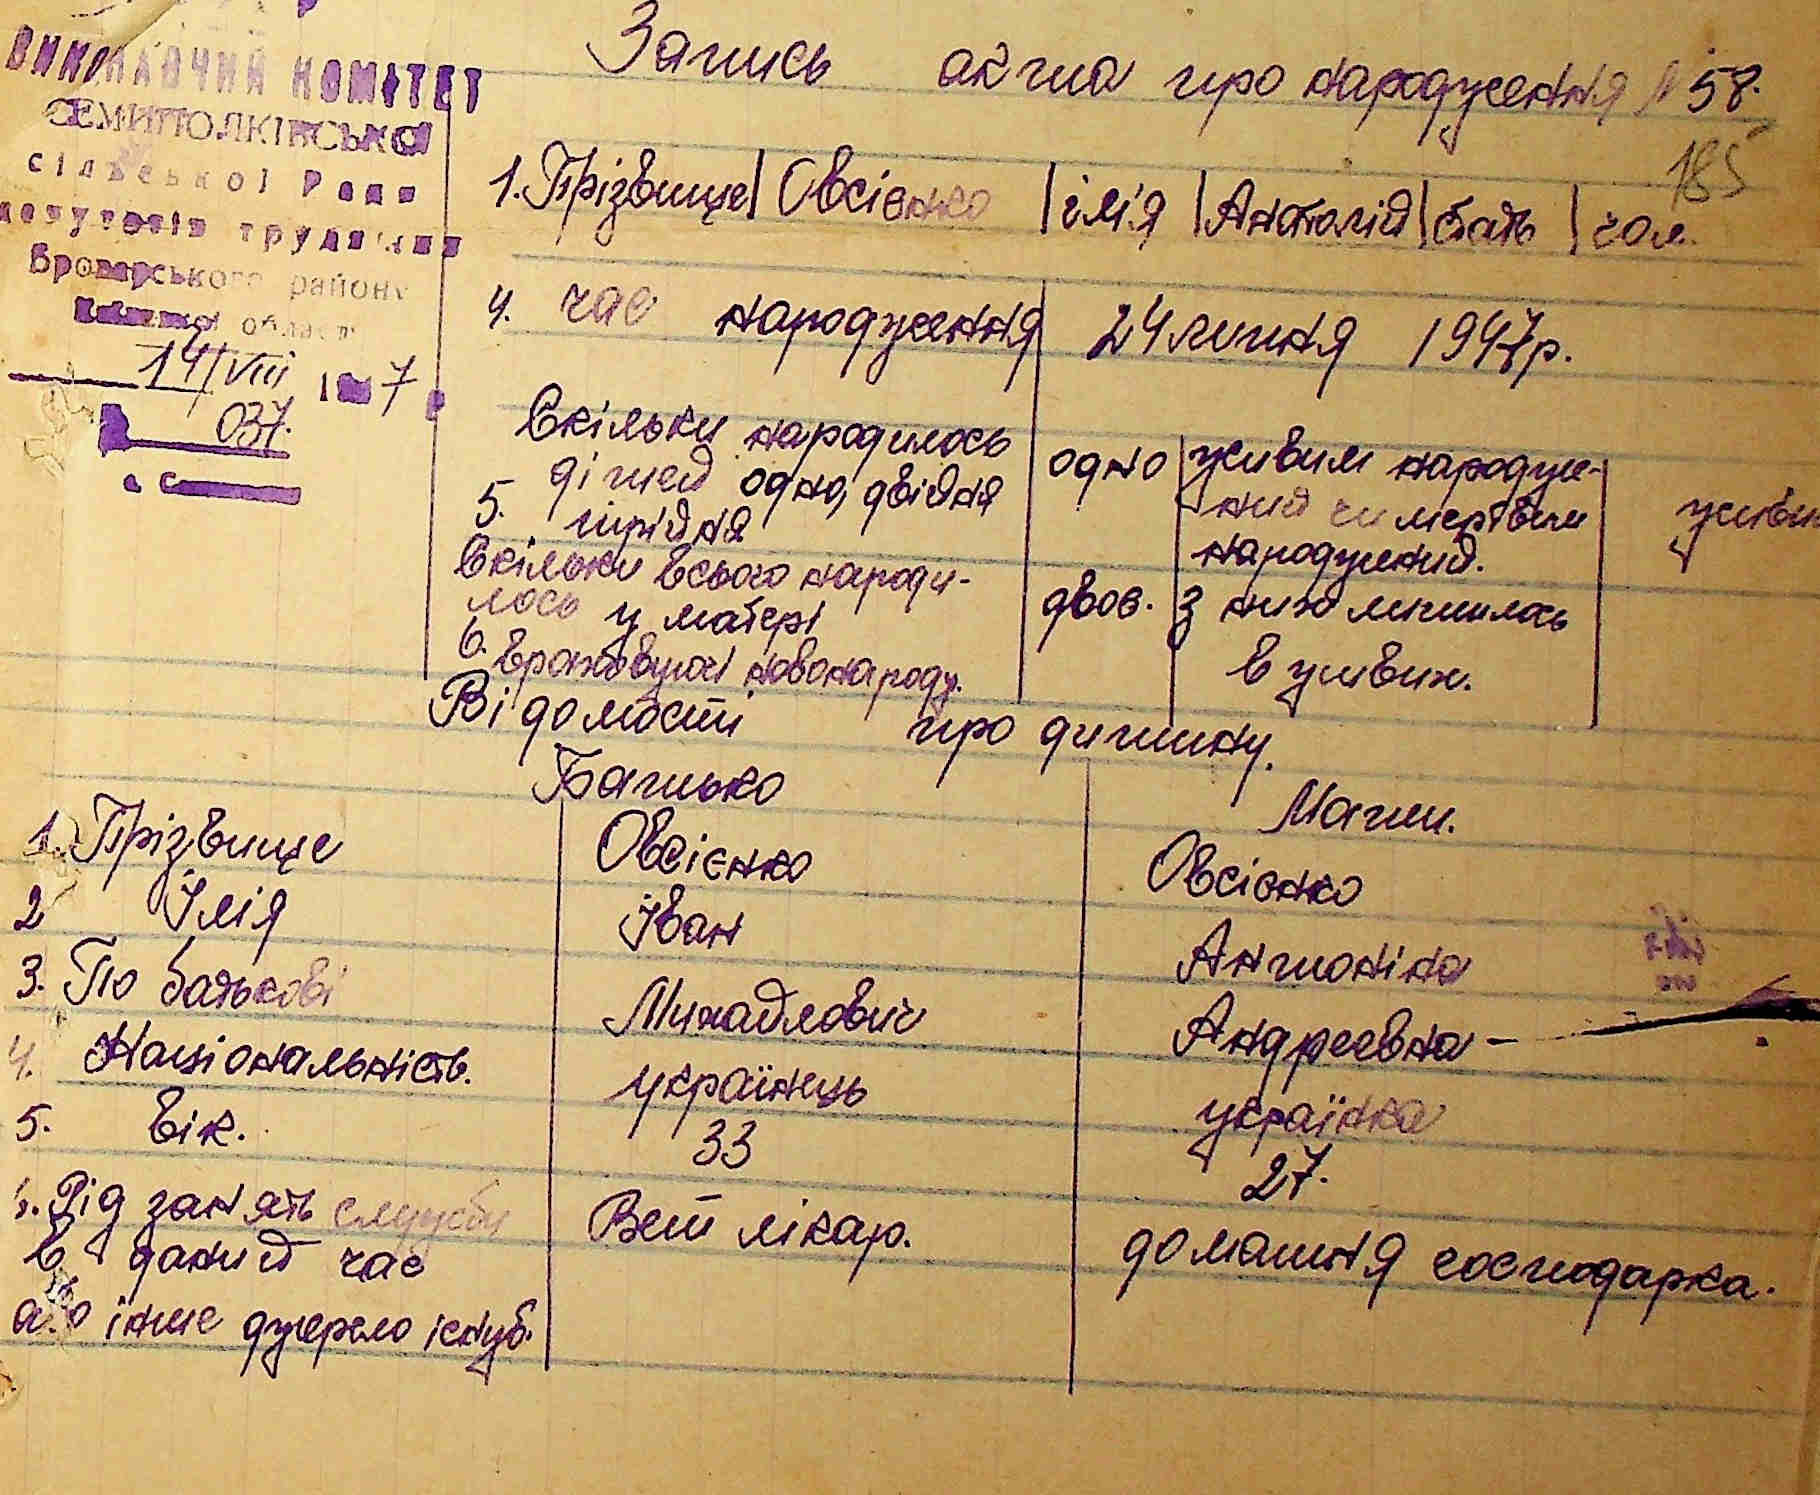 ВИКОНАВЧИЙ КОМІТЕТ
СЕМИПОЛКІВСЬКОЇ
сільської Ради
депутатів трудящих
Броварського району
Київської області
14/VIII 1947
037.
Запись акта про народження N 58.
185
1. Прізвище | Овсієнко | ім'я | Анатолій | бать | чол.
4. час народження 24 липня 1947р.
Скільки народилось
5. дітей одно, двійня
трійня
одно
живим народже-
ний чи мертвим
народжений.
живим
Скільки всього народи-
лось у матері
6. враховуючі новонародж.
двоє.
з них лишилось
в живих.
Відомості про дитину.
Батько Мати.
1. Прізвище Овсієнко Овсієнко
2 Імія Іван Антоніна
3. По батькові Михайлович Андреевна
4. Національність. українець українка
5. Вік. 33 27.
6. Рід занять служби Вет лікар. домашня господарка.
в даний час
або інше джерело існув.